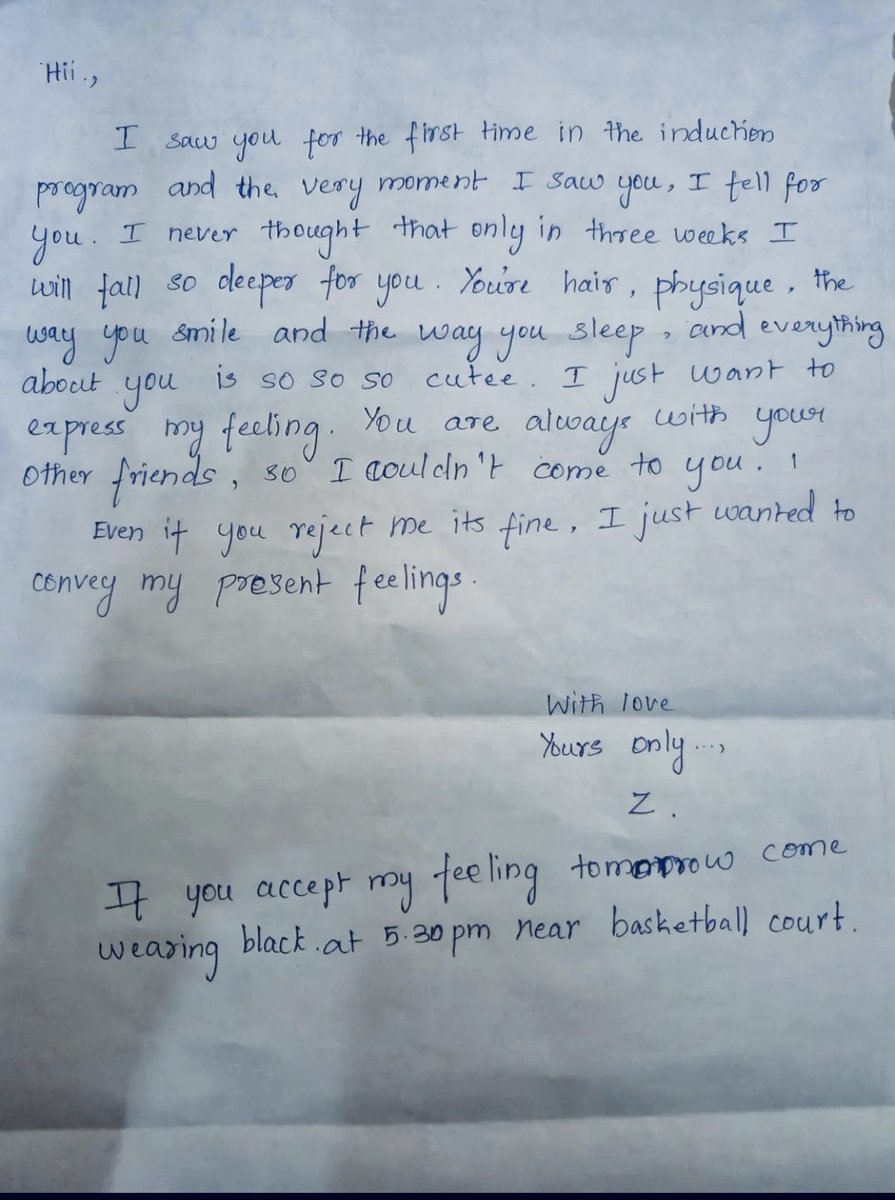 Hii.,
I saw you for the first time in the induction
program and the very moment I saw you, I fell for
you. I never thought that only in three weeks I
will fall so deeper for you. You're hair, physique, the
way you smile and the way you sleep, and everything
about you is so so so cutee. I just want to
express my feeling. You are always with your
other friends, so I couldn't come to you.
Even if you reject me its fine, I just wanted to
convey my present feelings.
With love
Yours only...,
Z.
If you accept my feeling tomorrow come
wearing black.at 5.30pm near basketball court.